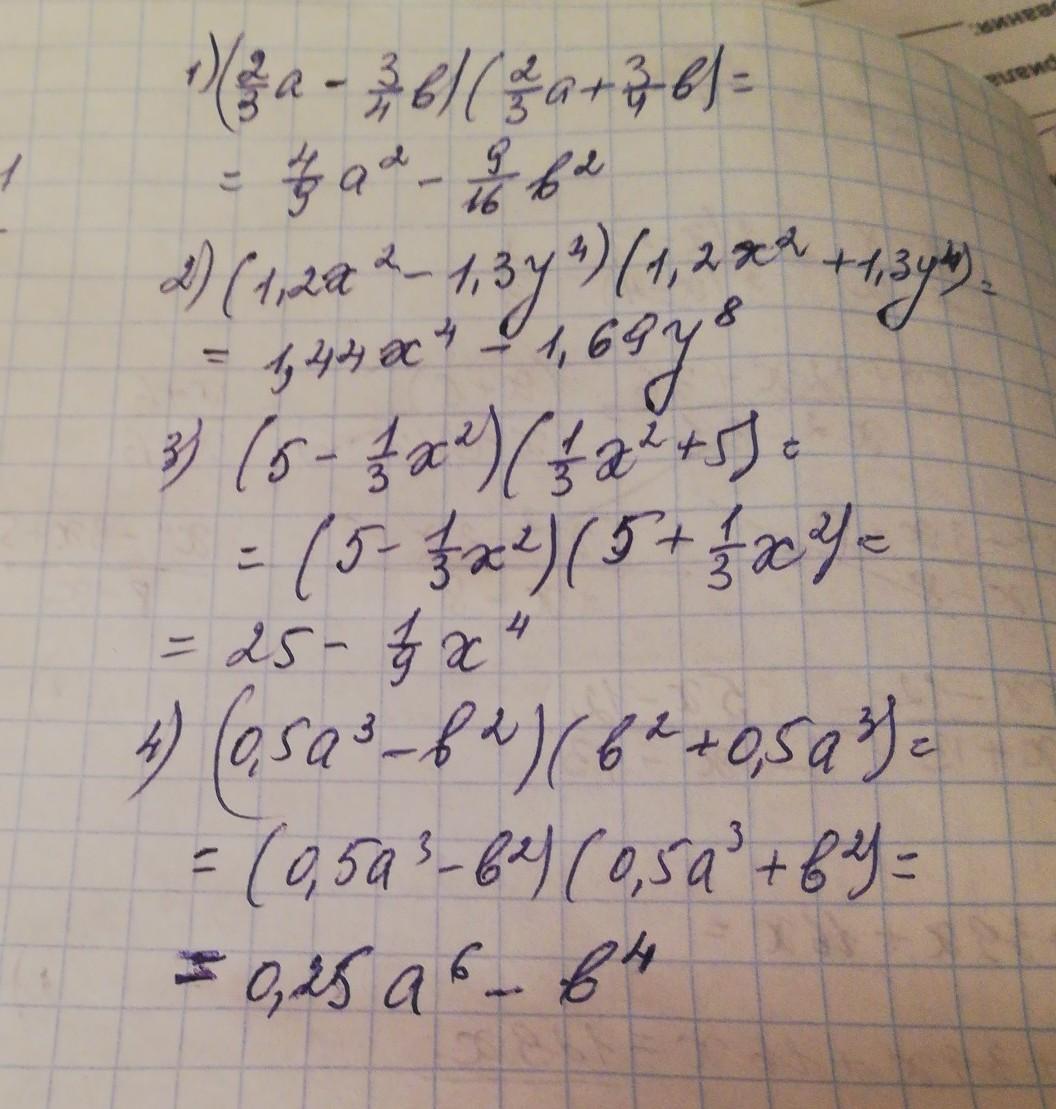 1) (2/3 a - 3/4 в) (2/3 a + 3/4 в) =
= 4/9 a² - 9/16 в²
2) (1,2x² - 1,3y⁴) (1,2x² + 1,3y⁴) =
= 1,44x⁴ - 1,69y⁸
3) (5 - 1/3 x²) (1/3 x² + 5) =
= (5 - 1/3 x²) (5 + 1/3 x²) =
= 25 - 1/9 x⁴
4) (0,5a³ - в²) (в² + 0,5a³) =
= (0,5a³ - в²) (0,5a³ + в²) =
= 0,25a⁶ - в⁴